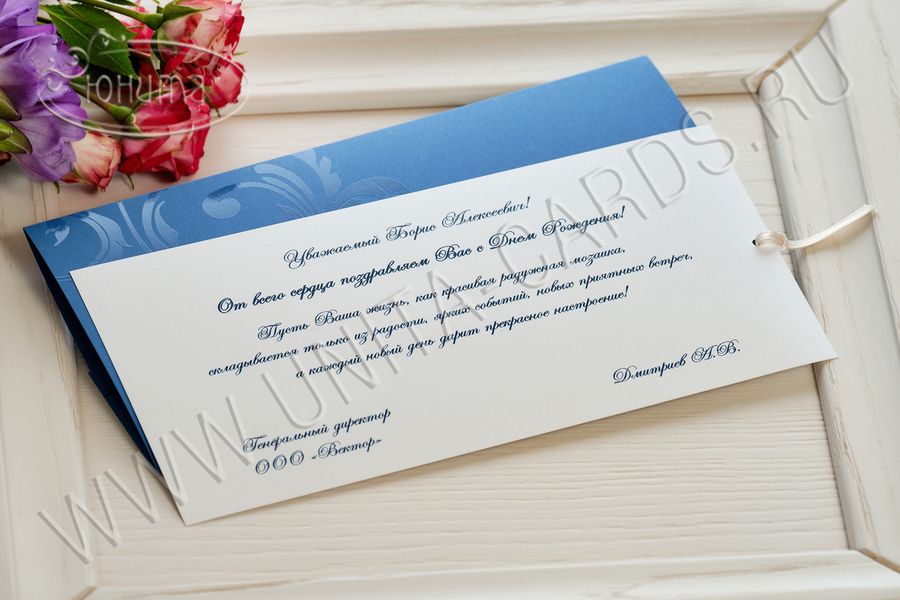 Юнита
Уважаемый Борис Алексеевич!
От всего сердца поздравляем Вас с Днем Рождения!
Пусть Ваша жизнь, как красивая радужная мозаика,
складывается только из радости, ярких событий, новых приятных встреч,
а каждый новый день дарит прекрасное настроение!
Дмитриев А.В.
Генеральный директор
ООО «Вектор»
WWW.UNITA-CARDS.RU